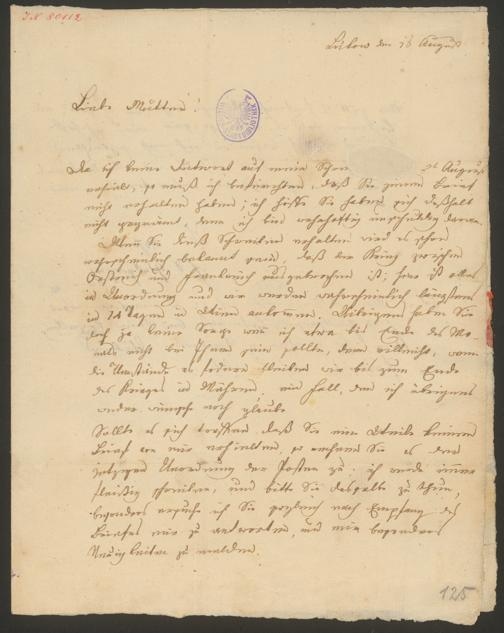 I.N. 80112
Lukow den 16 August
Liebe Mutter!
Da ich keine Antwort auf mein Schreiben 2t August
erhielt, so muß ich befürchten, daß Sie jenen Brief
nicht erhalten haben; ich hoffe Sie haben sich deßhalb
nicht gegrämt, denn ich bin wahrhaftig unschuldig daran.
Wenn Sie dieß Schreiben erhalten wird es schon
wahrscheinlich bekannt seyn, daß der Krieg zwischen
Östreich und Frankreich ausgebrochen ist; hier ist alles
in Unordnung und wir werden wahrscheinlich längstens
in 14 Tagen in Wien ankommen. Übrigens haben Sie
doch ja keine Sorge wenn ich etwa bis Ende des Mo-
nats nicht bei Ihnen seyn sollte, denn vielleicht, wenn
die Umstände es fodern bleiben wir bis zum Ende
des Krieges in Mähren, ein Fall, den ich übrigens
noch glaube
Sollte es sich treffen daß Sie eine Weile keinen
Brief von mir erhielten, so messen Sie es der
jetzigen Unordnung der Posten zu; ich werde immer
fleißig schreiben, und bitte Sie dasselbe zu thun,
besonders ersuche ich Sie sogleich nach Empfang des
Briefes mir zu antworten, und mir besonders
Neuigkeiten zu melden.
125